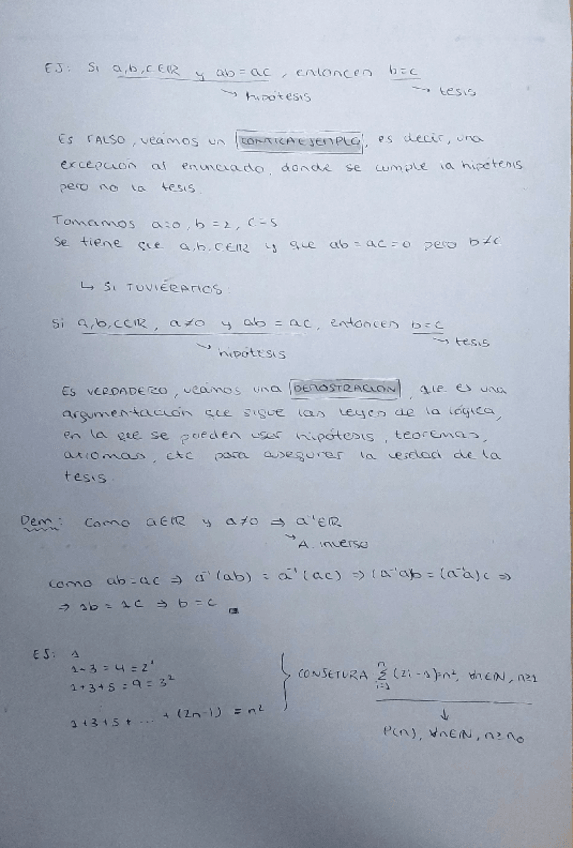 EJ: Si a,b,c∈ℝ y ab = ac, entonces b=c
→ hipótesis → tesis
Es FALSO, veamos un CONTRAEJEMPLO, es decir, una
excepción al enunciado, donde se cumple la hipótesis
pero no la tesis.
Tomamos a=0, b=2, c=5
Se tiene que a,b,c∈ℝ y que ab = ac = 0 pero b≠c
↳ SI TUVIÉRAMOS:
Si a,b,c∈ℝ, a≠0 y ab = ac, entonces b=c
→ hipótesis → tesis
Es VERDADERO, veamos una DEMOSTRACIÓN, que es una
argumentación que sigue las leyes de la lógica,
en la que se pueden usar hipótesis, teoremas,
axiomas, etc para asegurar la verdad de la
tesis.
Dem: Como a∈ℝ y a≠0 ⇒ a⁻¹∈ℝ
→ A. inverso
Como ab=ac ⇒ a⁻¹(ab) = a⁻¹(ac) ⇒ (a⁻¹a)b = (a⁻¹a)c ⇒
⇒ 1b = 1c ⇒ b = c ■
EJ: 1
1+3 = 4 = 2²
1+3+5 = 9 = 3²
1+3+5+ ... + (2n-1) = n²
CONJETURA ∑ᵢ₌₁ⁿ (2i-1)=n², ∀n∈ℕ, n≥1
↓
P(n), ∀n∈ℕ, n≥n₀